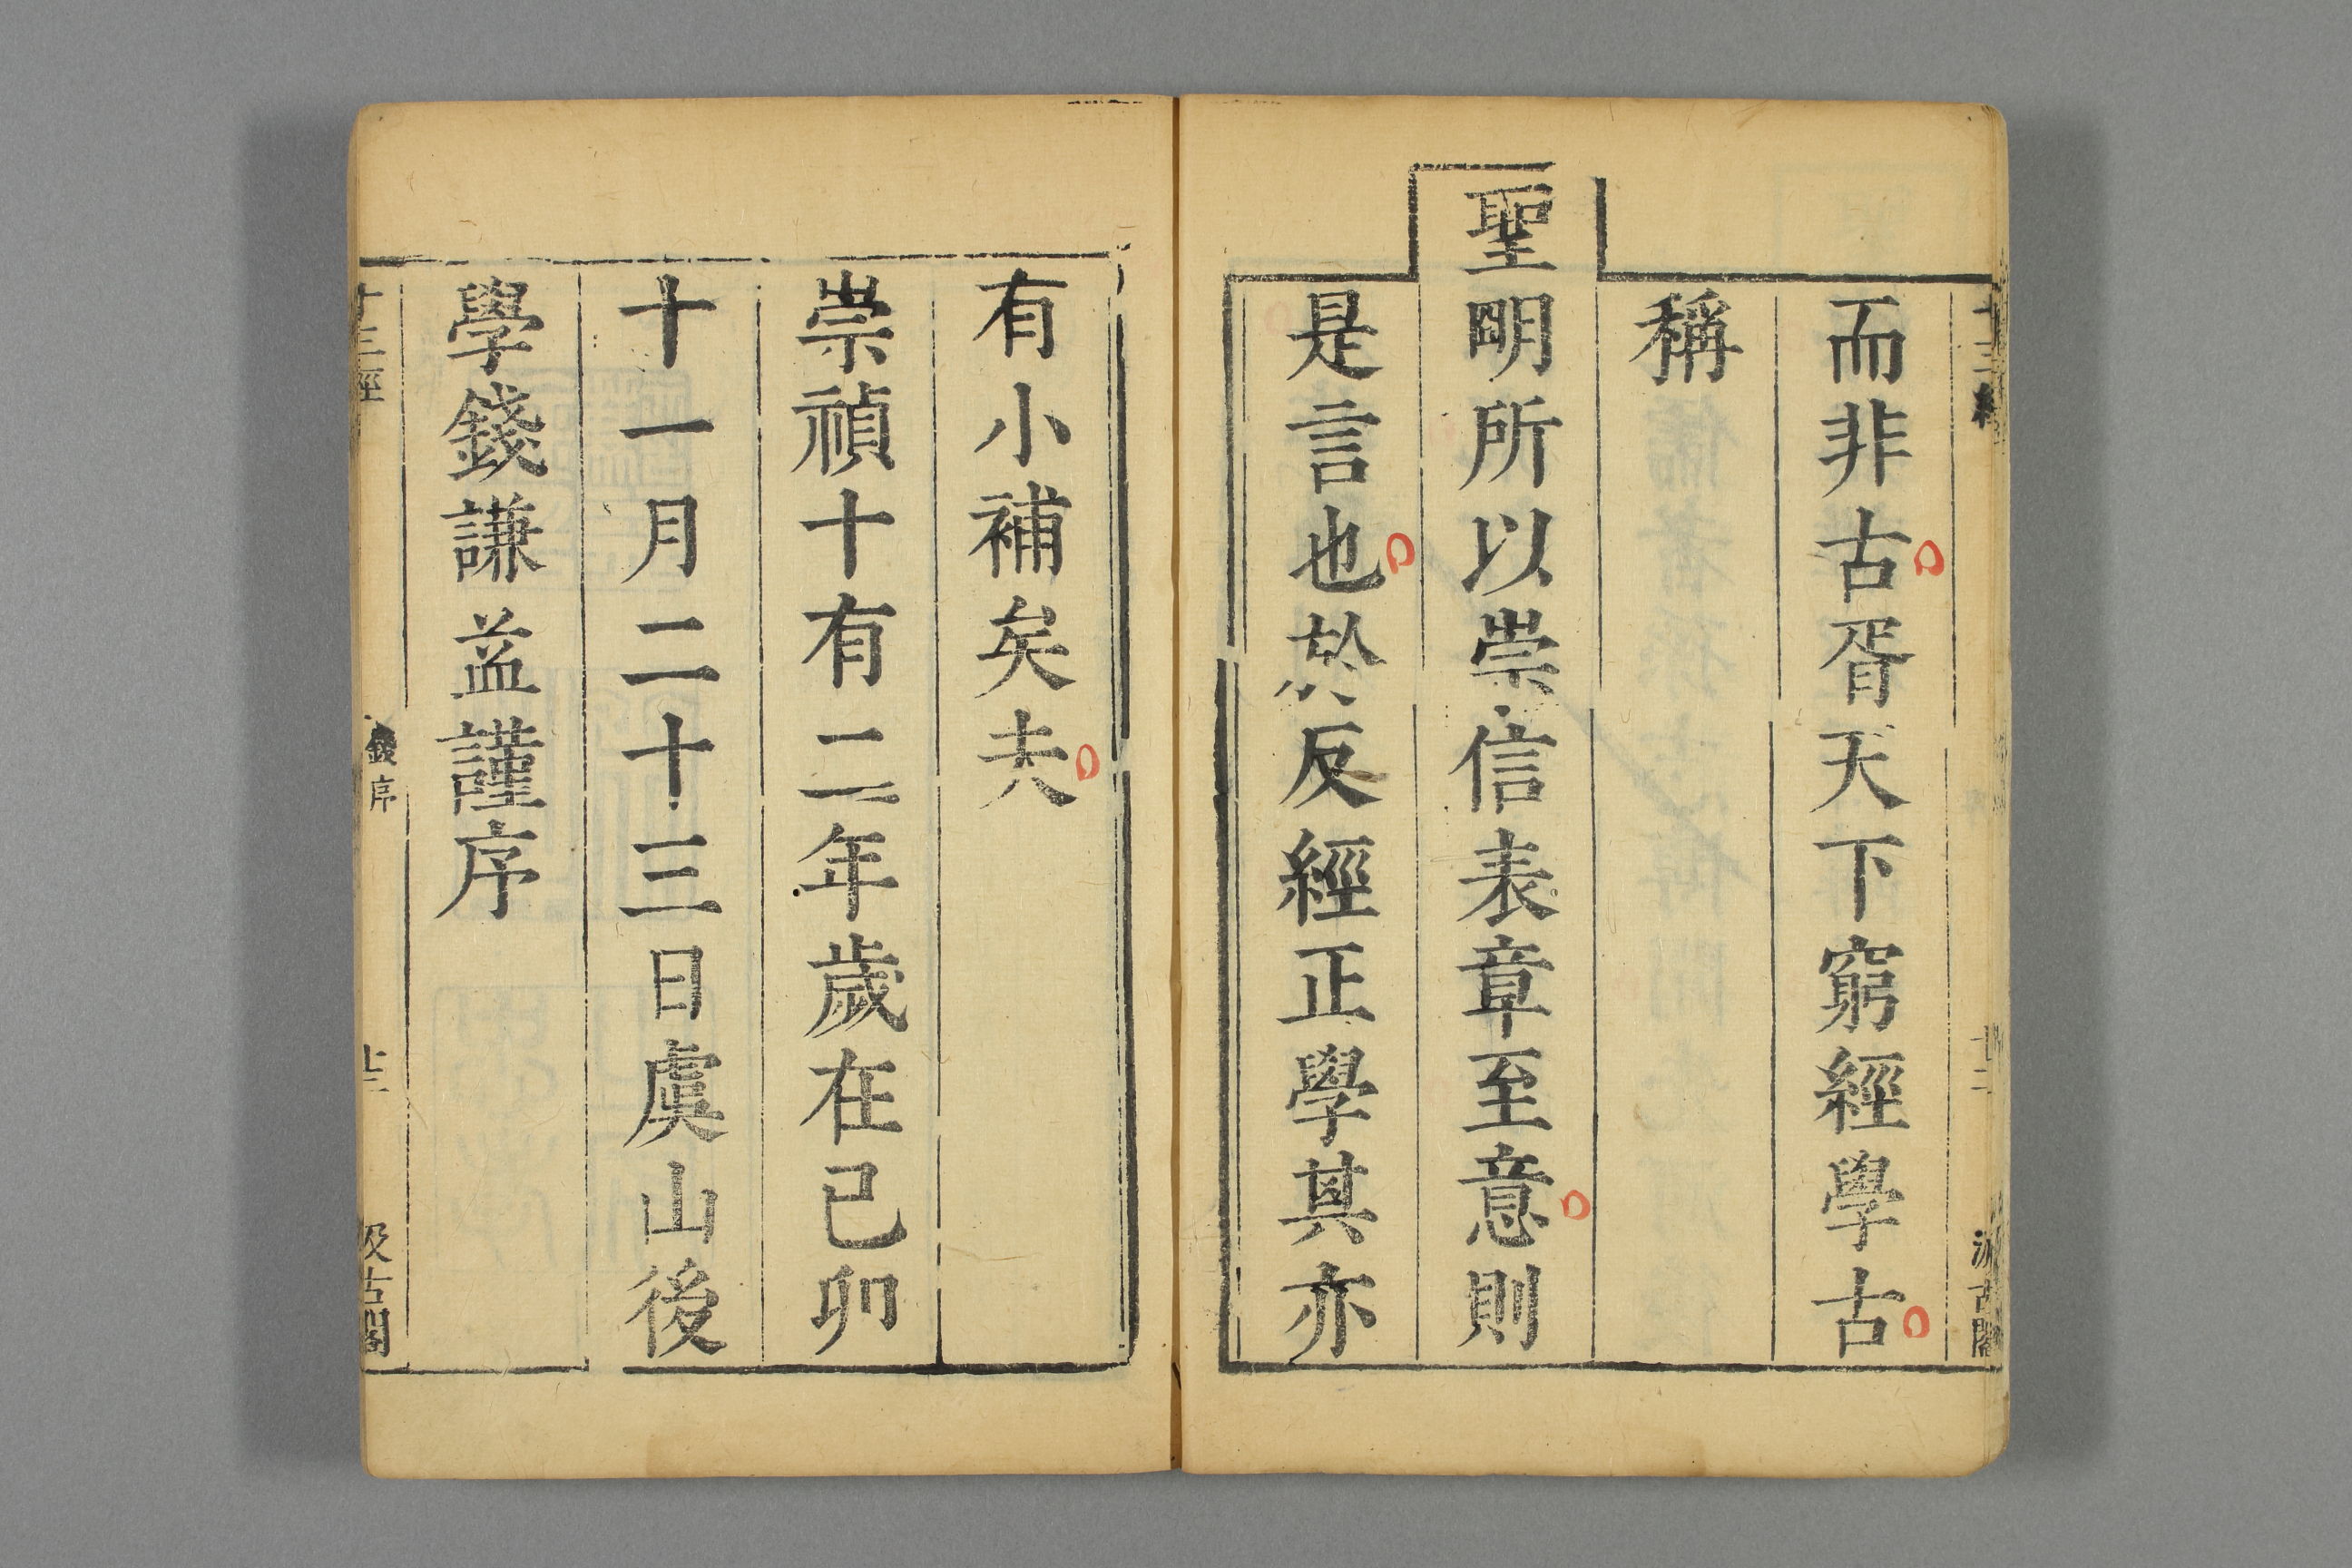 而非古胥天下窮經學古
稱
聖明所以崇信表章至意則
是言也於反經正學其亦
有小補矣夫
崇禎十有二年歲在己卯
十一月二十三日虞山後
學錢謙益謹序
十三經
錢序
汲古閣